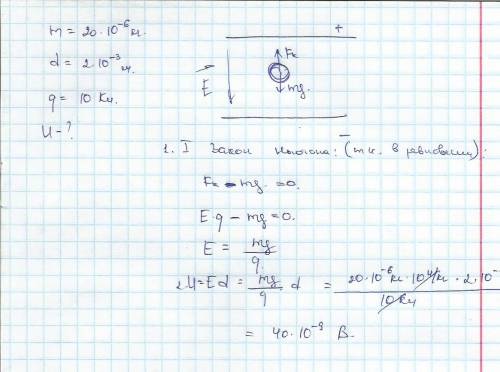 m = 20·10⁻⁶ кг.
+
d = 2·10⁻³ м.
Fк
E
mg.
q = 10 Кл.
U - ?
–
1. I Закон Ньютона: (т.к. в равновесии):
Fк - mg = 0.
E·q - mg = 0.
E = mg/q.
2. U = Ed = mg/q d = 20·10⁻⁶ кг · 10 Н/кг · 2·10⁻ / 10 Кл
= 40·10⁻⁹ В.